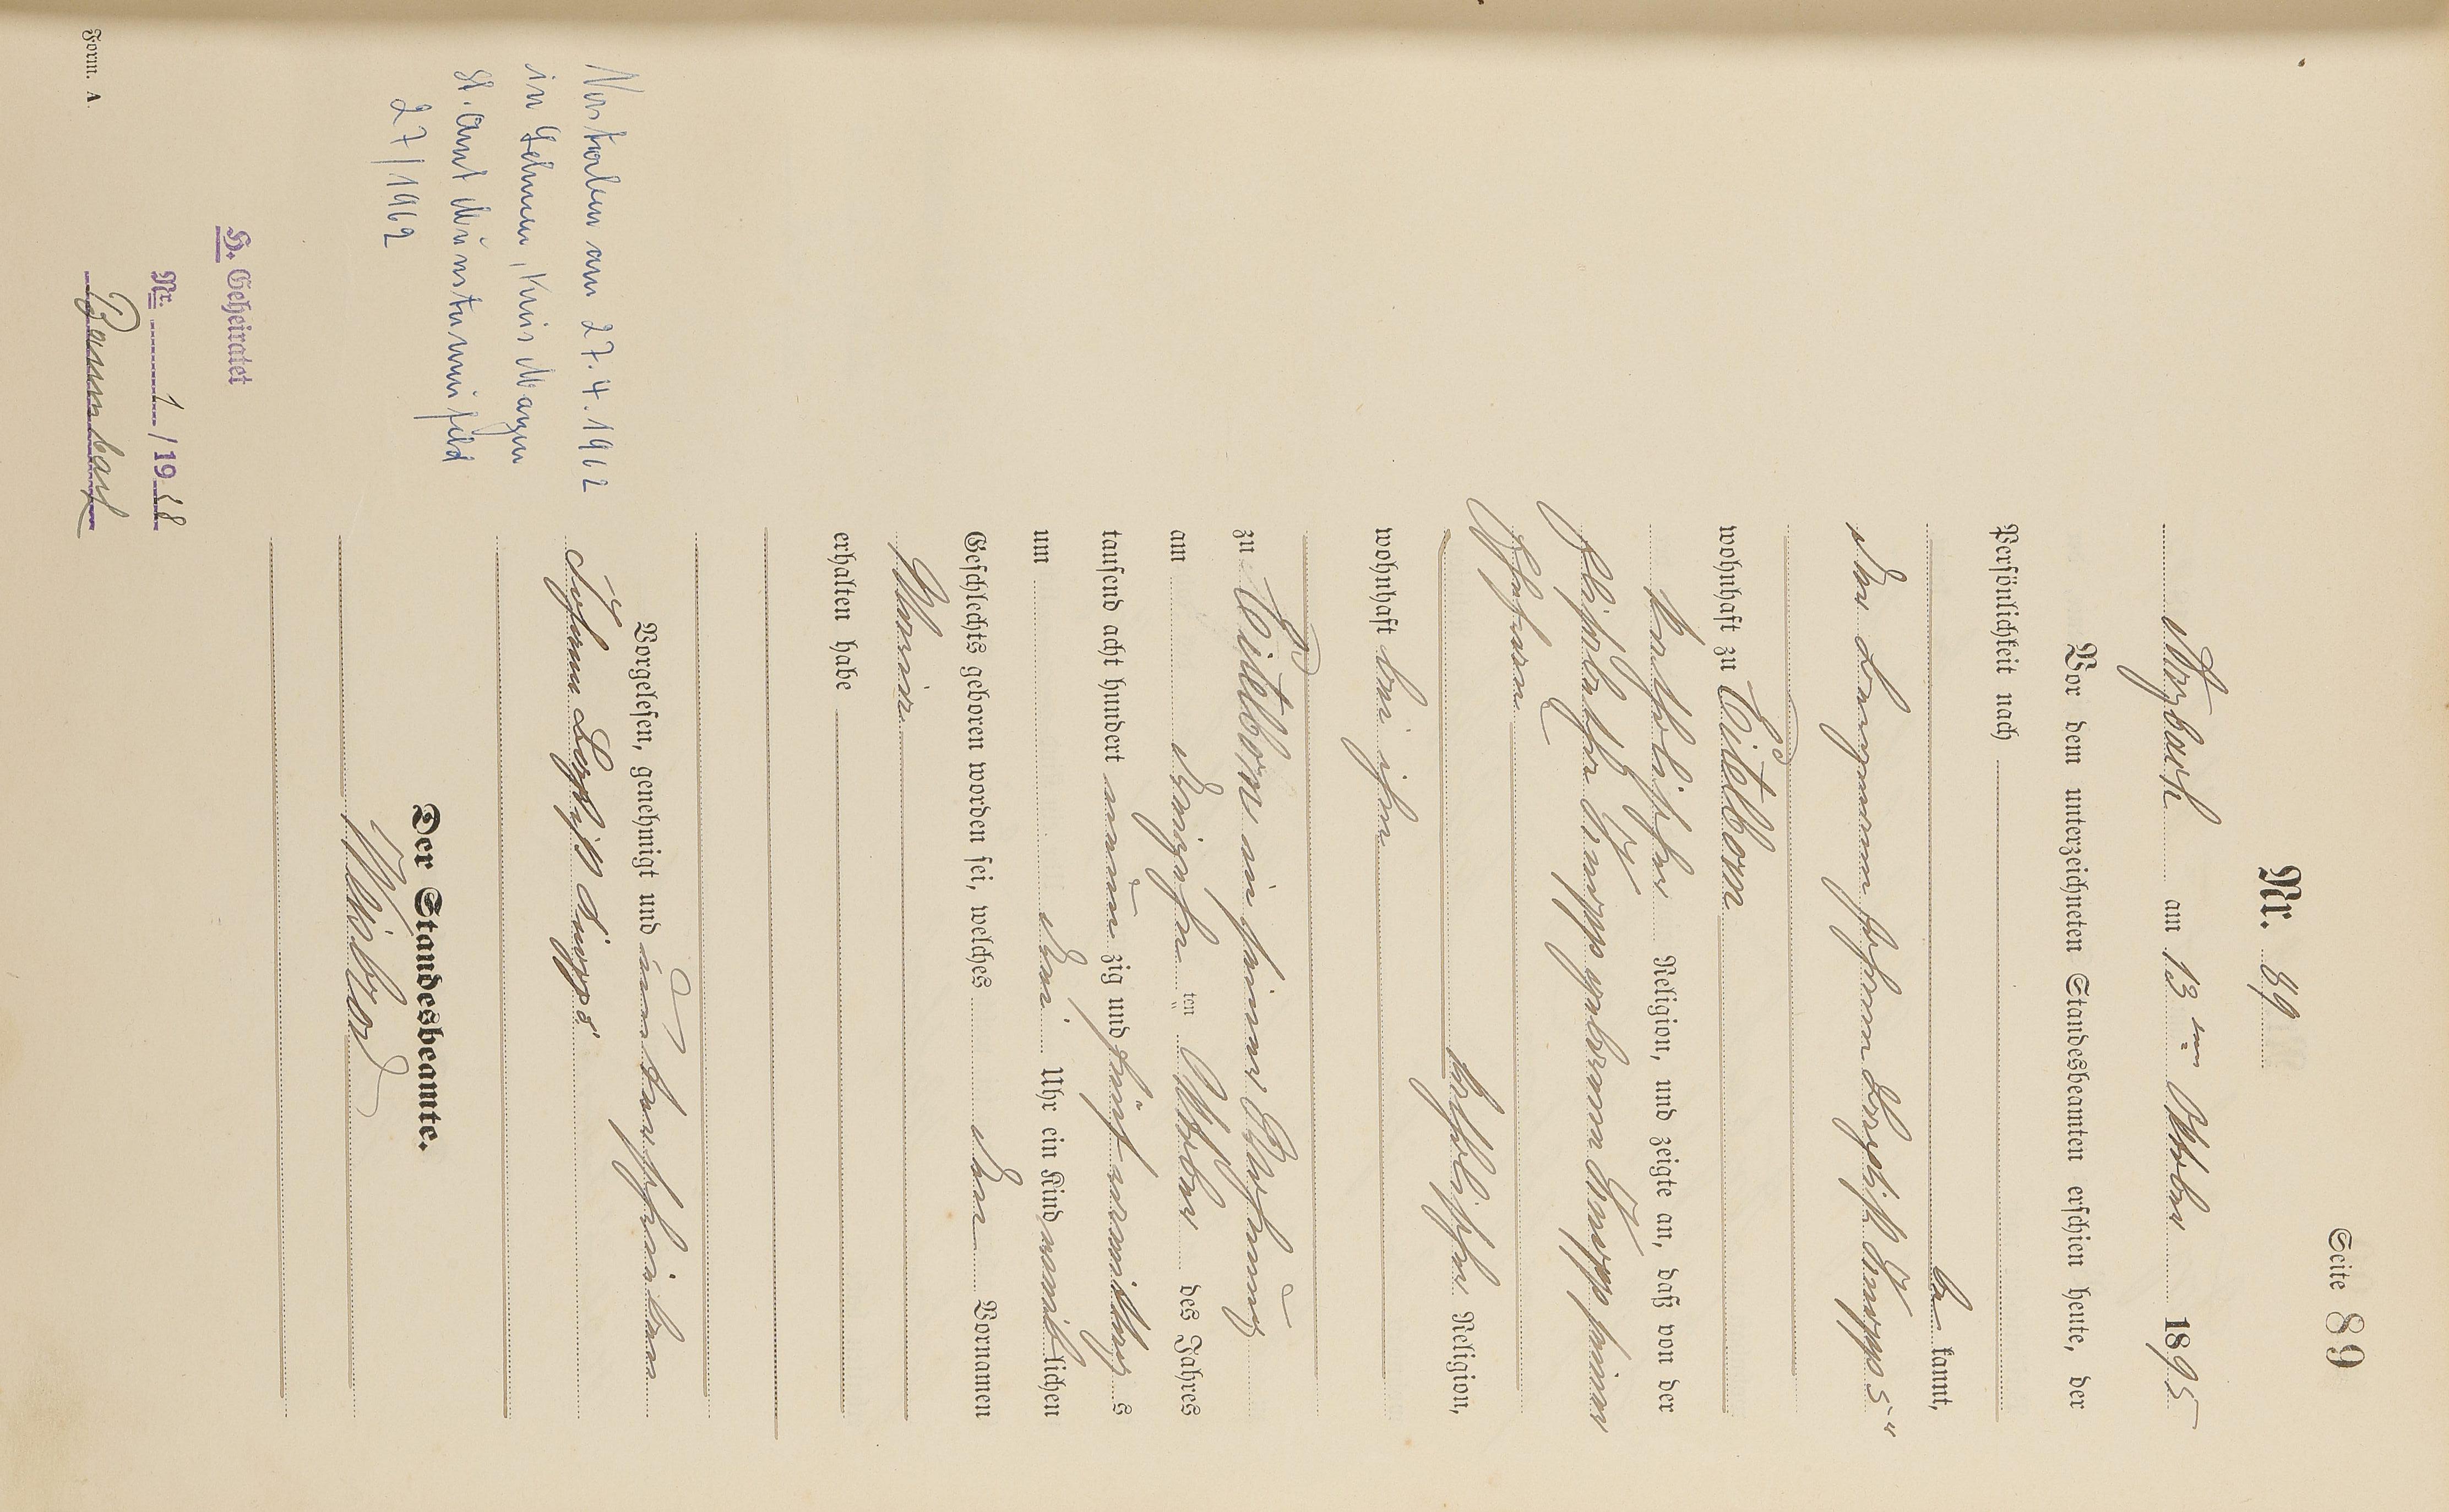 Seite 89
Nr. 89
Arzbach am 13ten Oktober 1895
Vor dem unterzeichneten Standesbeamten erschien heute, der
Persönlichkeit nach
be kannt,
der Bergmann Johann
wohnhaft zu Eitelborn
katholischer Religion, und zeigte an, daß von der
Elisabetha geborenen seiner
Ehefrau
katholischer Religion,
wohnhaft bei ihm
zu Eitelborn in seiner Wohnung
am dreizehn ten Oktober des Jahres
tausend acht hundert neun zig und fünf vormittag s
um drei Uhr ein Kind weib lichen
Geschlechts geboren worden sei, welches den Vornamen
Maria
erhalten habe
Vorgelesen, genehmigt und unterschrieben
Johann
Der Standesbeamte.
Verstorben am 27.4.1962
in Gehmen, Kreis Mayen
St. Amt Münstermaifeld
27/1962
H. Geheiratet
Nr. 1/19
Form. A.